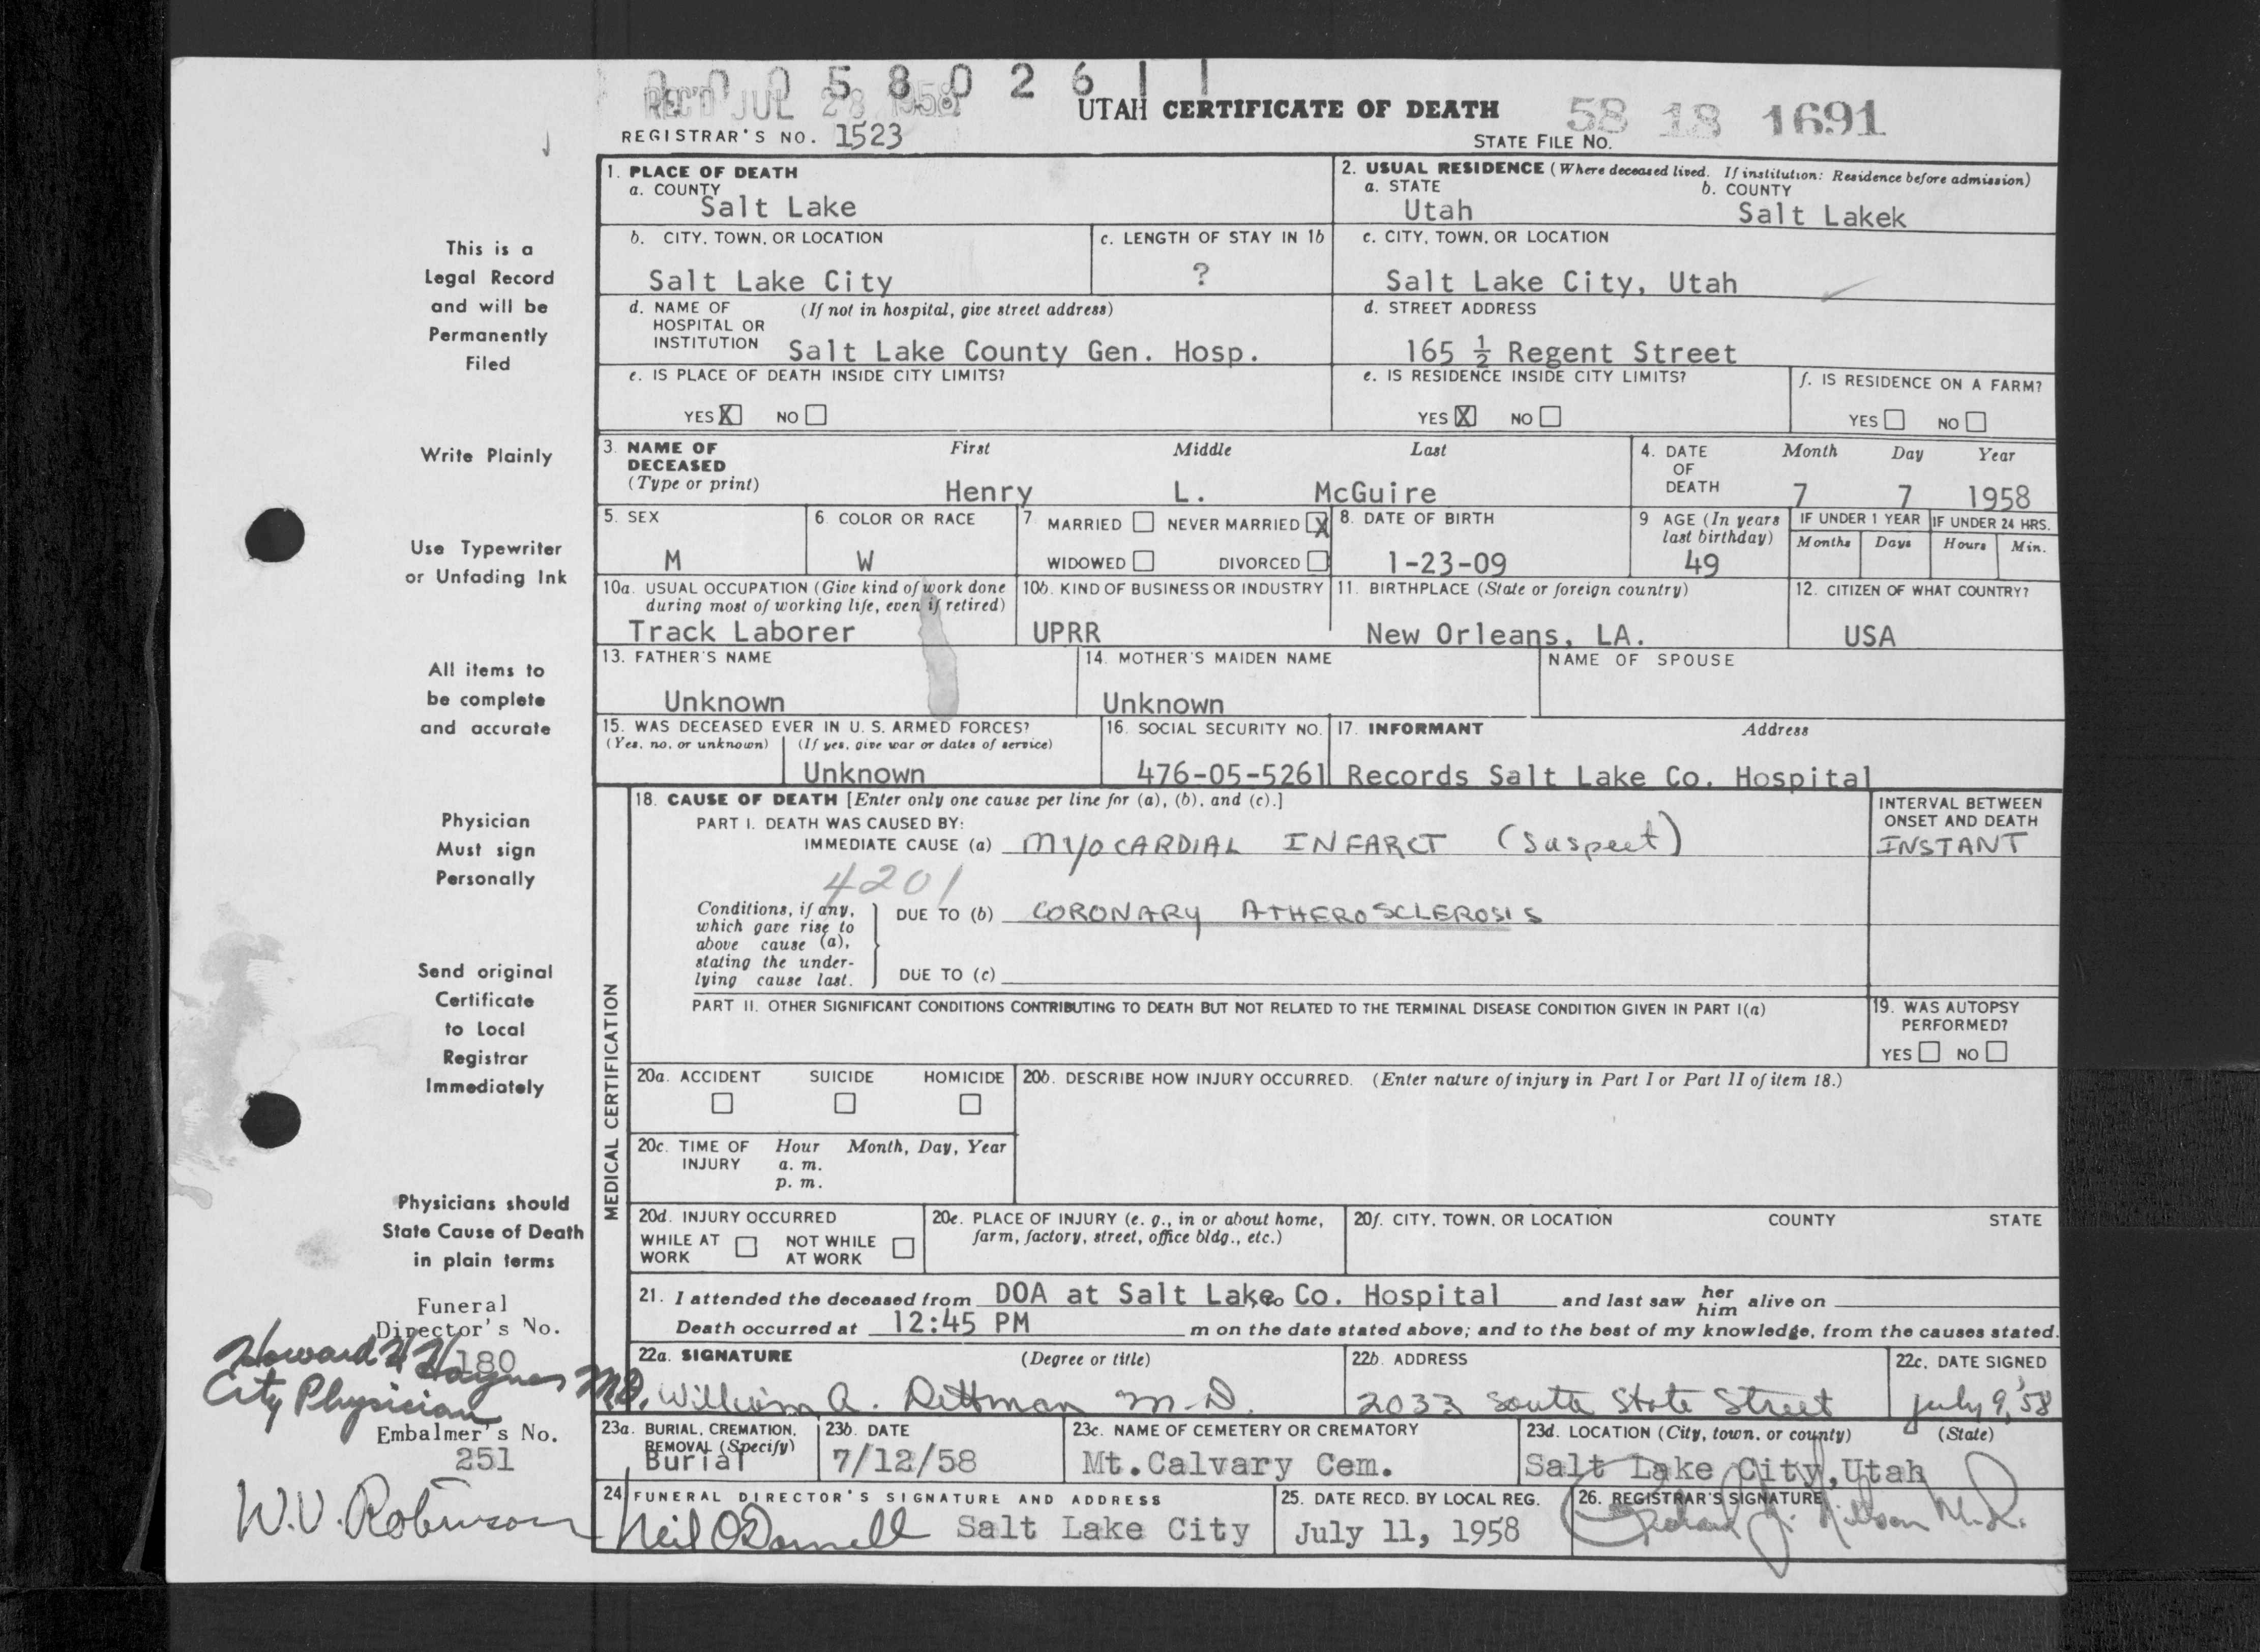 0 0 0 5 8 0 2 6 1 1
REC'D JUL 28 1958
UTAH CERTIFICATE OF DEATH
58 18 1691
REGISTRAR'S NO. 1523
STATE FILE NO.
1. PLACE OF DEATH
a. COUNTY
Salt Lake
2. USUAL RESIDENCE (Where deceased lived. If institution: Residence before admission)
a. STATE b. COUNTY
Utah Salt Lakek
b. CITY, TOWN, OR LOCATION
Salt Lake City
c. LENGTH OF STAY IN 1b
?
c. CITY, TOWN, OR LOCATION
Salt Lake City, Utah
d. NAME OF (If not in hospital, give street address)
HOSPITAL OR
INSTITUTION Salt Lake County Gen. Hosp.
d. STREET ADDRESS
165 ½ Regent Street
e. IS PLACE OF DEATH INSIDE CITY LIMITS?
YES X NO
e. IS RESIDENCE INSIDE CITY LIMITS?
YES X NO
f. IS RESIDENCE ON A FARM?
YES NO
3. NAME OF First Middle Last
DECEASED
(Type or print) Henry L. McGuire
4. DATE Month Day Year
OF
DEATH 7 7 1958
5. SEX
M
6. COLOR OR RACE
W
7 MARRIED NEVER MARRIED X
WIDOWED DIVORCED
8. DATE OF BIRTH
1-23-09
9 AGE (In years
last birthday)
49
IF UNDER 1 YEAR IF UNDER 24 HRS.
Months Days Hours Min.
10a. USUAL OCCUPATION (Give kind of work done
during most of working life, even if retired)
Track Laborer
10b. KIND OF BUSINESS OR INDUSTRY
UPRR
11. BIRTHPLACE (State or foreign country)
New Orleans, LA.
12. CITIZEN OF WHAT COUNTRY?
USA
13. FATHER'S NAME
Unknown
14. MOTHER'S MAIDEN NAME
Unknown
NAME OF SPOUSE
15. WAS DECEASED EVER IN U. S. ARMED FORCES?
(Yes, no, or unknown) (If yes, give war or dates of service)
Unknown
16. SOCIAL SECURITY NO.
476-05-5261
17. INFORMANT Address
Records Salt Lake Co. Hospital
MEDICAL CERTIFICATION
18. CAUSE OF DEATH [Enter only one cause per line for (a), (b), and (c).]
PART I. DEATH WAS CAUSED BY:
IMMEDIATE CAUSE (a) MYOCARDIAL INFARCT (Suspect)
INTERVAL BETWEEN
ONSET AND DEATH
INSTANT
4201
Conditions, if any,
which gave rise to
above cause (a),
stating the under-
lying cause last.
DUE TO (b) CORONARY ATHEROSCLEROSIS
DUE TO (c)
PART II. OTHER SIGNIFICANT CONDITIONS CONTRIBUTING TO DEATH BUT NOT RELATED TO THE TERMINAL DISEASE CONDITION GIVEN IN PART I(a)
19. WAS AUTOPSY
PERFORMED?
YES NO
20a. ACCIDENT SUICIDE HOMICIDE
20b. DESCRIBE HOW INJURY OCCURRED. (Enter nature of injury in Part I or Part II of item 18.)
20c. TIME OF Hour Month, Day, Year
INJURY a. m.
p. m.
20d. INJURY OCCURRED
WHILE AT NOT WHILE
WORK AT WORK
20e. PLACE OF INJURY (e. g., in or about home,
farm, factory, street, office bldg., etc.)
20f. CITY, TOWN, OR LOCATION COUNTY STATE
21. I attended the deceased from DOA at Salt Lake, to Co. Hospital and last saw her him alive on
Death occurred at 12:45 PM m on the date stated above; and to the best of my knowledge, from the causes stated.
22a. SIGNATURE (Degree or title)
William A. Dettman M.D.
22b. ADDRESS
2033 South State Street
22c. DATE SIGNED
July 9, '58
23a. BURIAL, CREMATION,
REMOVAL (Specify)
Burial
23b. DATE
7/12/58
23c. NAME OF CEMETERY OR CREMATORY
Mt.Calvary Cem.
23d. LOCATION (City, town, or county) (State)
Salt Lake City, Utah
24 FUNERAL DIRECTOR'S SIGNATURE AND ADDRESS
Neil O'Donnell Salt Lake City
25. DATE RECD. BY LOCAL REG.
July 11, 1958
26. REGISTRAR'S SIGNATURE
M.D.
This is a
Legal Record
and will be
Permanently
Filed
Write Plainly
Use Typewriter
or Unfading Ink
All items to
be complete
and accurate
Physician
Must sign
Personally
Send original
Certificate
to Local
Registrar
Immediately
Physicians should
State Cause of Death
in plain terms
Funeral
Director's No.
180
Howard M.D.
City Physician
Embalmer's No.
251
W.V. Robinson